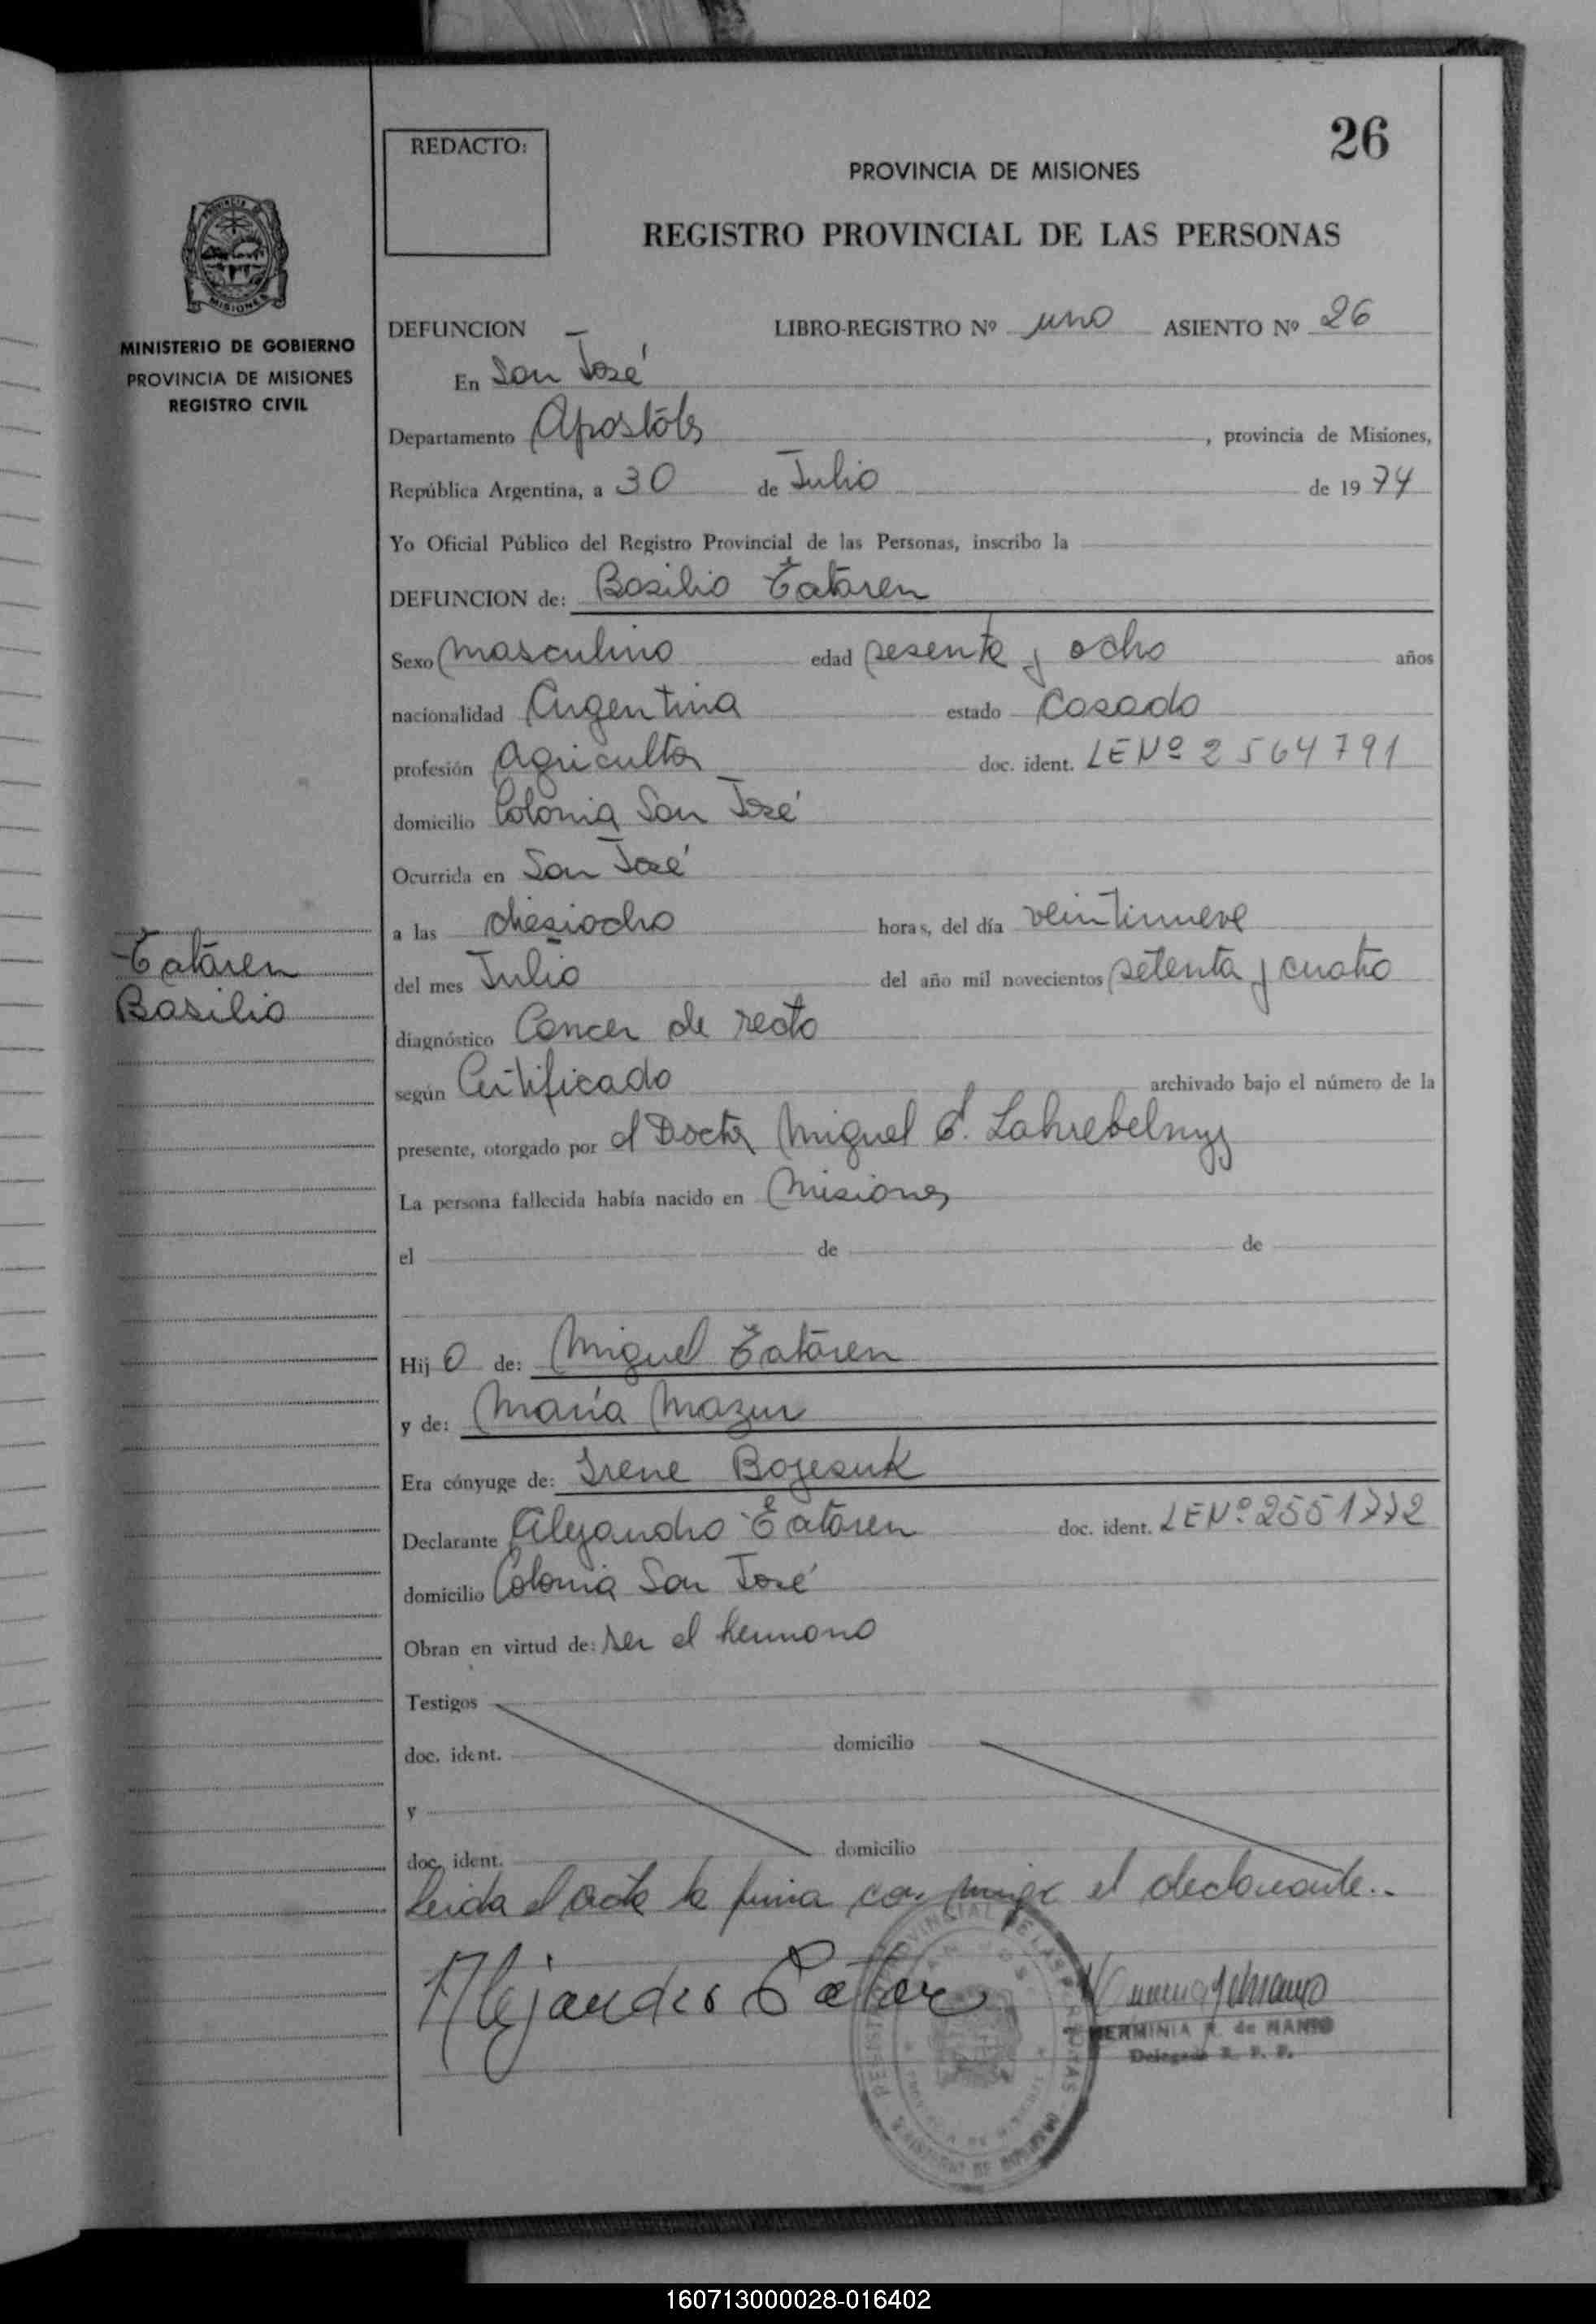 26
REDACTO:
PROVINCIA DE MISIONES
REGISTRO PROVINCIAL DE LAS PERSONAS
MINISTERIO DE GOBIERNO
PROVINCIA DE MISIONES
REGISTRO CIVIL
DEFUNCION LIBRO-REGISTRO Nº uno ASIENTO Nº 26
En San José
Departamento Apostóles, provincia de Misiones,
República Argentina, a 30 de Julio de 1974
Yo Oficial Público del Registro Provincial de las Personas, inscribo la
DEFUNCION de: Basilio Tataren
Sexo masculino edad sesenta y ocho años
nacionalidad Argentina estado Casado
profesión Agricultor doc. ident. LE Nº 2564791
domicilio Colonia San José
Ocurrida en San José
a las diesiocho horas, del día veintinueve
Tataren
Basilio
del mes Julio del año mil novecientos setenta y cuatro
diagnóstico Cancer de recto
según Certificado archivado bajo el número de la
presente, otorgado por el Doctor Miguel
La persona fallecida había nacido en Misiones
el de de
Hijo de: Miguel Tataren
y de: María Mazur
Era cónyuge de: Irene Bojesuk
Declarante Alejandro Tataren doc. ident. LE Nº 2551772
domicilio Colonia San José
Obran en virtud de: ser el hermano
Testigos
doc. ident. domicilio
y
doc. ident. domicilio
Leida el acta la firma con migo el declarante..
Alejandro
HERMINIA de
Delegada R. P. P.
160713000028-016402